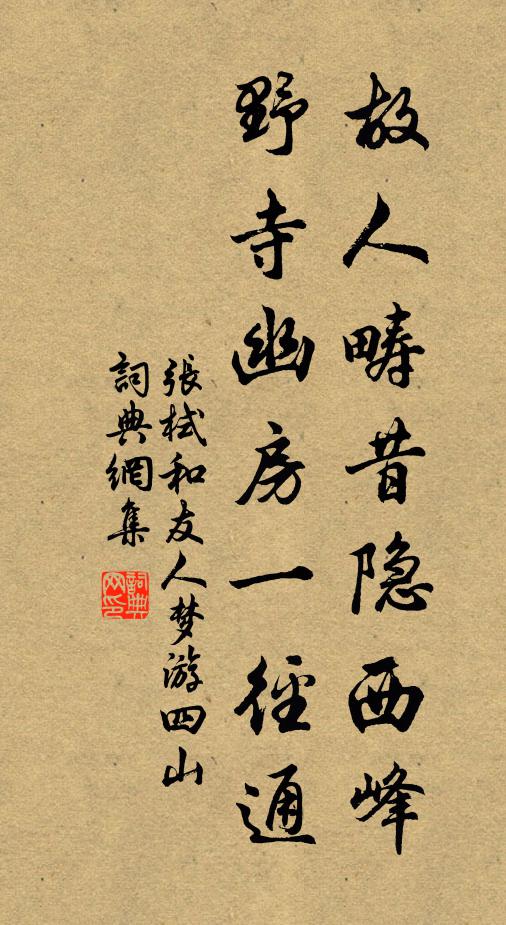 故人畴昔隐西峰
野寺幽房一径通
張栻和友人梦游四山
詞典網集
詞典网印